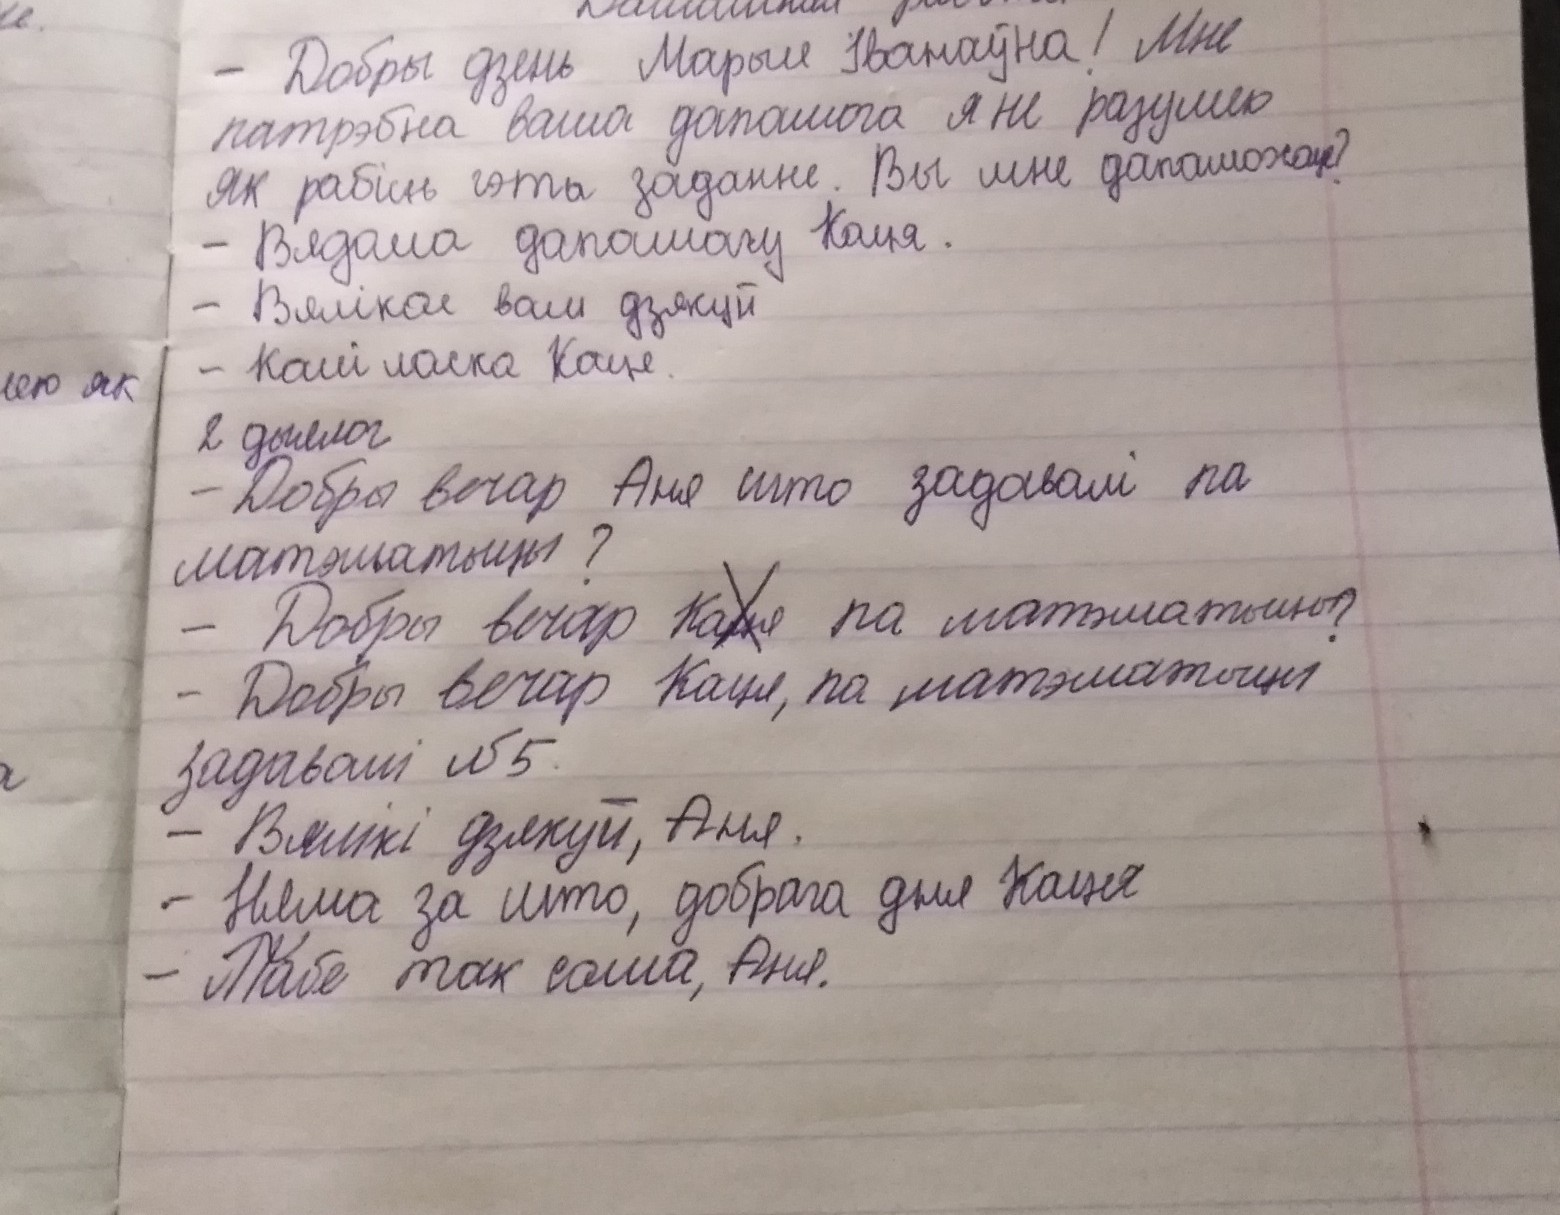 Дамашняя работа
- Добры дзень Марыя Іванаўна! Мне
патрэбна ваша дапамога я не разумею
як рабіць гэта заданне. Вы мне дапаможаце?
- Вядома дапамагу Каця.
- Вялікае вам дзякуй
- Калі ласка Каця.
лею як
2 дыялог
- Добры вечар Аня што задавалі па
матэматыцы?
- Добры вечар Каця па матэматыцы?
- Добры вечар Каця, па матэматыцы
задавалі №5.
- Вялікі дзякуй, Аня.
- Няма за што, добрага дня Каця
- Табе так сама, Аня.